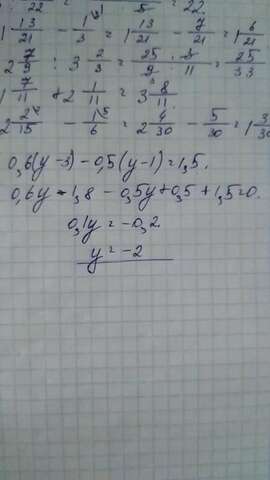 22 5 22.
1 13/21 - 1/3 = 1 13/21 - 7/21 = 1 6/21
2 7/9 : 3 2/3 = 25/9 · 3/11 = 25/33
1 7/11 + 2 1/11 = 3 8/11.
2 2/15 - 1/6 = 2 4/30 - 5/30 = 1
0,6(y-3)-0,5(y-1)=1,5.
0,6y-1,8-0,5y+0,5+1,5=0.
0,1y=-0,2.
y=-2